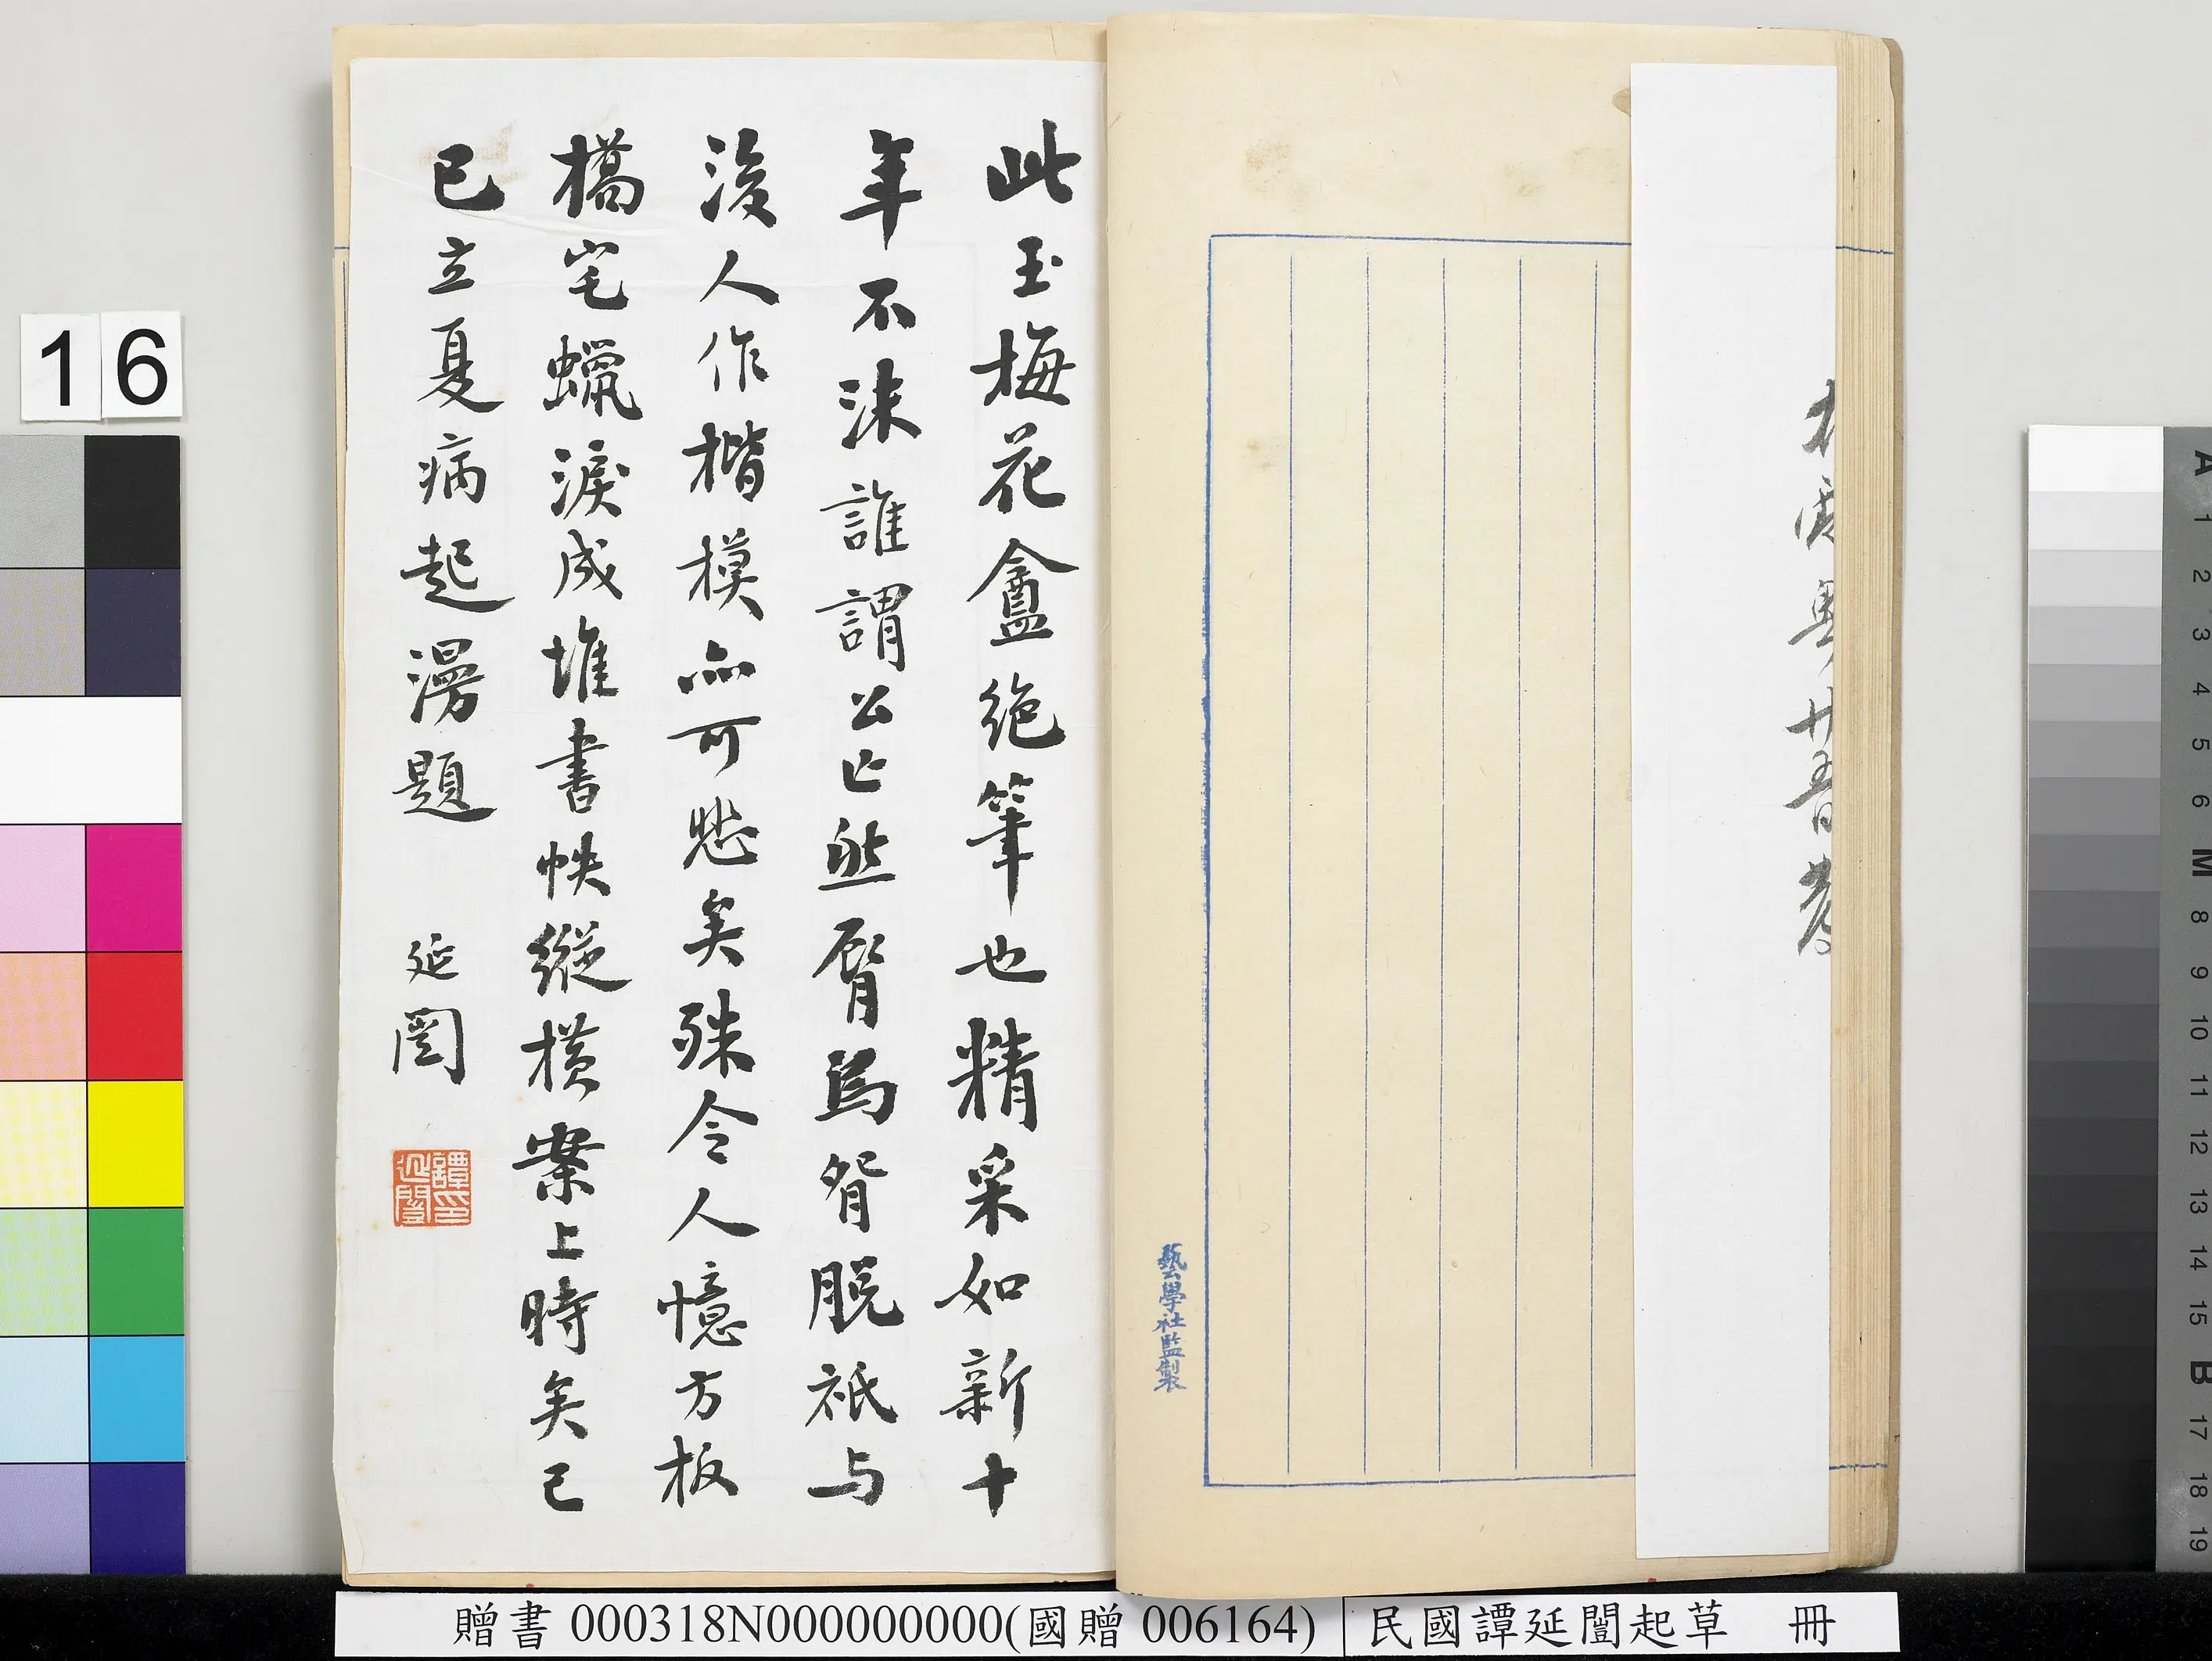 此玉梅花盦絕筆也精采如新十
年不沬誰謂公亡然為脫祇与
後人作楷模亦可悲矣殊令人憶方板
橋宅蠟淚成堆書帙縱橫案上時矣己
巳立夏病起漫題 延闓
譚延闓印
藝學社監製
16
贈書 000318N000000000(國贈 006164)
民國譚延闓起草 冊
A 1 2 3 4 5 6 M 8 9 10 11 12 13 14 15 B 17 18 19